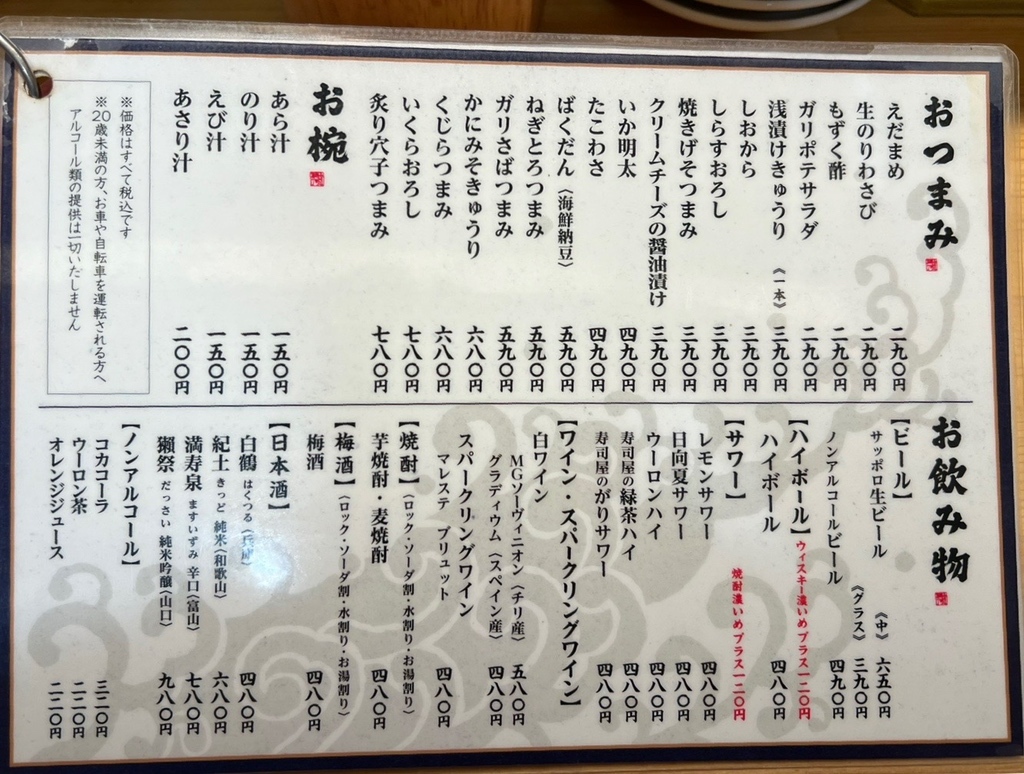 おつまみ
えだまめ 二九〇円
生のりわさび 二九〇円
もずく酢 二九〇円
ガリポテサラダ 二九〇円
浅漬けきゅうり《一本》 三九〇円
しおから 三九〇円
しらすおろし 三九〇円
焼きげそつまみ 三九〇円
クリームチーズの醤油漬け 三九〇円
いか明太 四九〇円
たこわさ 四九〇円
ばくだん〈海鮮納豆〉 五九〇円
ねぎとろつまみ 五九〇円
ガリさばつまみ 五九〇円
かにみそきゅうり 六八〇円
くじらつまみ 六八〇円
いくらおろし 七八〇円
炙り穴子つまみ 七八〇円
お椀
あら汁 一五〇円
のり汁 一五〇円
えび汁 一五〇円
あさり汁 二〇〇円
※価格はすべて税込です
※20歳未満の方、お車や自転車を運転される方へ
アルコール類の提供は一切いたしません
お飲み物
【ビール】
サッポロ生ビール《中》 六五〇円
《グラス》 三九〇円
ノンアルコールビール 四九〇円
【ハイボール】ウィスキー濃いめプラス一二〇円
ハイボール 四八〇円
【サワー】焼酎濃いめプラス一二〇円
レモンサワー 四八〇円
日向夏サワー 四八〇円
ウーロンハイ 四八〇円
寿司屋の緑茶ハイ 四八〇円
寿司屋のがりサワー 四八〇円
【ワイン・スパークリングワイン】
白ワイン
MGソーヴィニオン〈チリ産〉 五八〇円
グラディウム〈スペイン産〉 四八〇円
スパークリングワイン
マレステ ブリュット
【焼酎】〈ロック・ソーダ割・水割り・お湯割り〉
芋焼酎・麦焼酎 四八〇円
【梅酒】〈ロック・ソーダ割・水割り・お湯割り〉
梅酒 四八〇円
【日本酒】
白鶴 はくつる〈兵庫〉 四八〇円
紀土 きっど 純米〈和歌山〉 六八〇円
満寿泉 ますいずみ 辛口〈富山〉 七八〇円
獺祭 だっさい 純米吟醸〈山口〉 九八〇円
【ノンアルコール】
コカコーラ 三二〇円
ウーロン茶 二二〇円
オレンジジュース 二二〇円